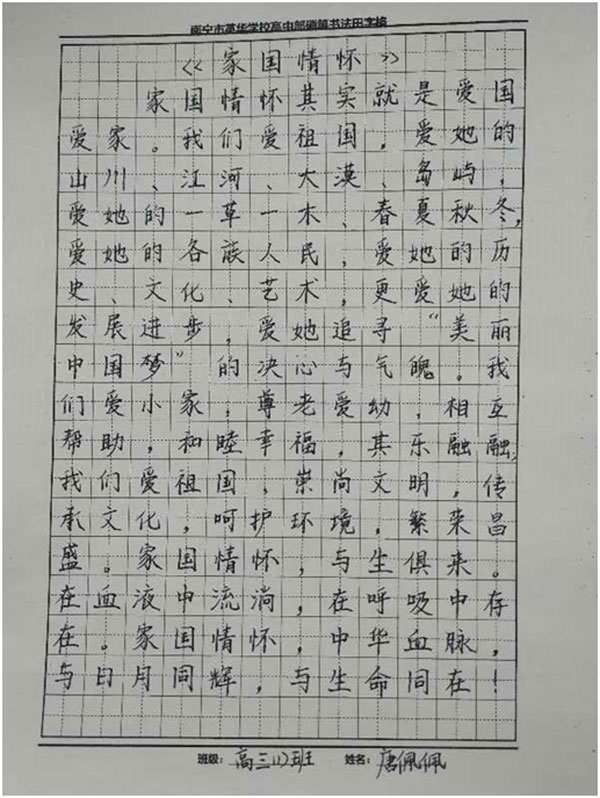 南宁市英华学校高中部硬笔书法田字格
《家国情怀》
家国情怀其实就是爱国
爱家。我们爱祖国，爱她的
山川、江河、大漠、岛屿，
爱她的一草一木、春夏秋冬，
爱她的各族人民，爱她的历
史、文化、艺术，更爱她的
发展进步，爱她追寻“美丽
中国梦”的决心与气魄。我
们爱小家，尊老爱幼，相互
帮助，和睦幸福，其乐融融，
我们爱祖国，崇尚文明，传
承文化，呵护环境，繁荣昌
盛。家国情怀，与生俱来。
在血液中流淌，在呼吸中存
在。家国情怀，中华血脉，
与日月同辉，与生命同在！
班级：高三(2)班 姓名：唐佩佩